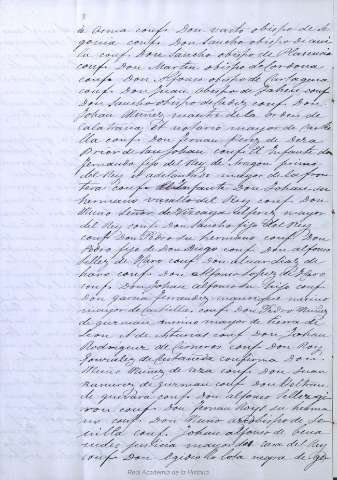 de Osma conf. Don Vasto obispo de Se
govia conf. Don Sancho obispo de Avi
la conf. Don Sancho obispo de Plasencia
conf. Don Martin obispo de Cordova
conf. Don Alfonso obispo de Cartagena
conf. Don Juan obispo de Jahen conf.
Don Sancho obispo de Cadiz conf. Don
Johan Nuñez maestre de la orden de
Calatrava et notario mayor de Caste
lla conf. Don Fernan Perez de
Prior de San Johan conf. El Infante don
Fernando fijo del Rey de Aragon primo
del Rey et adelantado mayor de la fron
tera conf. Infante Don Johan su
hermano vasallo del Rey conf. Don
Nuño Señor de Vizcaya Alferez mayor
del Rey conf. Don Sancho fijo del Rey
conf. Don Pedro su hermano conf. Don
Pedro fijo de Don Diego conf. Don Alfonso
Tellez de Haro conf. Don Alvar Diaz de
haro conf. Don Alfonso Lopez de Haro
conf. Don Johan Alfonso su fijo conf.
Don Garcia Fernandez manrique merino
mayor de Castilla conf. Don Pedro Nuñez
de Guzman merino mayor de tierra de
Leon et de Asturias conf. Don Johan
Rodriguez de Cisneros conf. Don Roy
Gonzalez de confirma Don
Nuño Nuñez de Aza conf. Don Juan
Ramirez de Guzman conf. Don Beltran
de Guevara conf. Don Alfonso Tellez gi
ron conf. Don Fernan Royz su herma
no conf. Don Nuño arzobispo de Se
villa conf. Johan Alfonso de bena
vides justicia mayor de casa del Rey
conf. Don Egidiolo bota negra de
Real Academia de la Historia